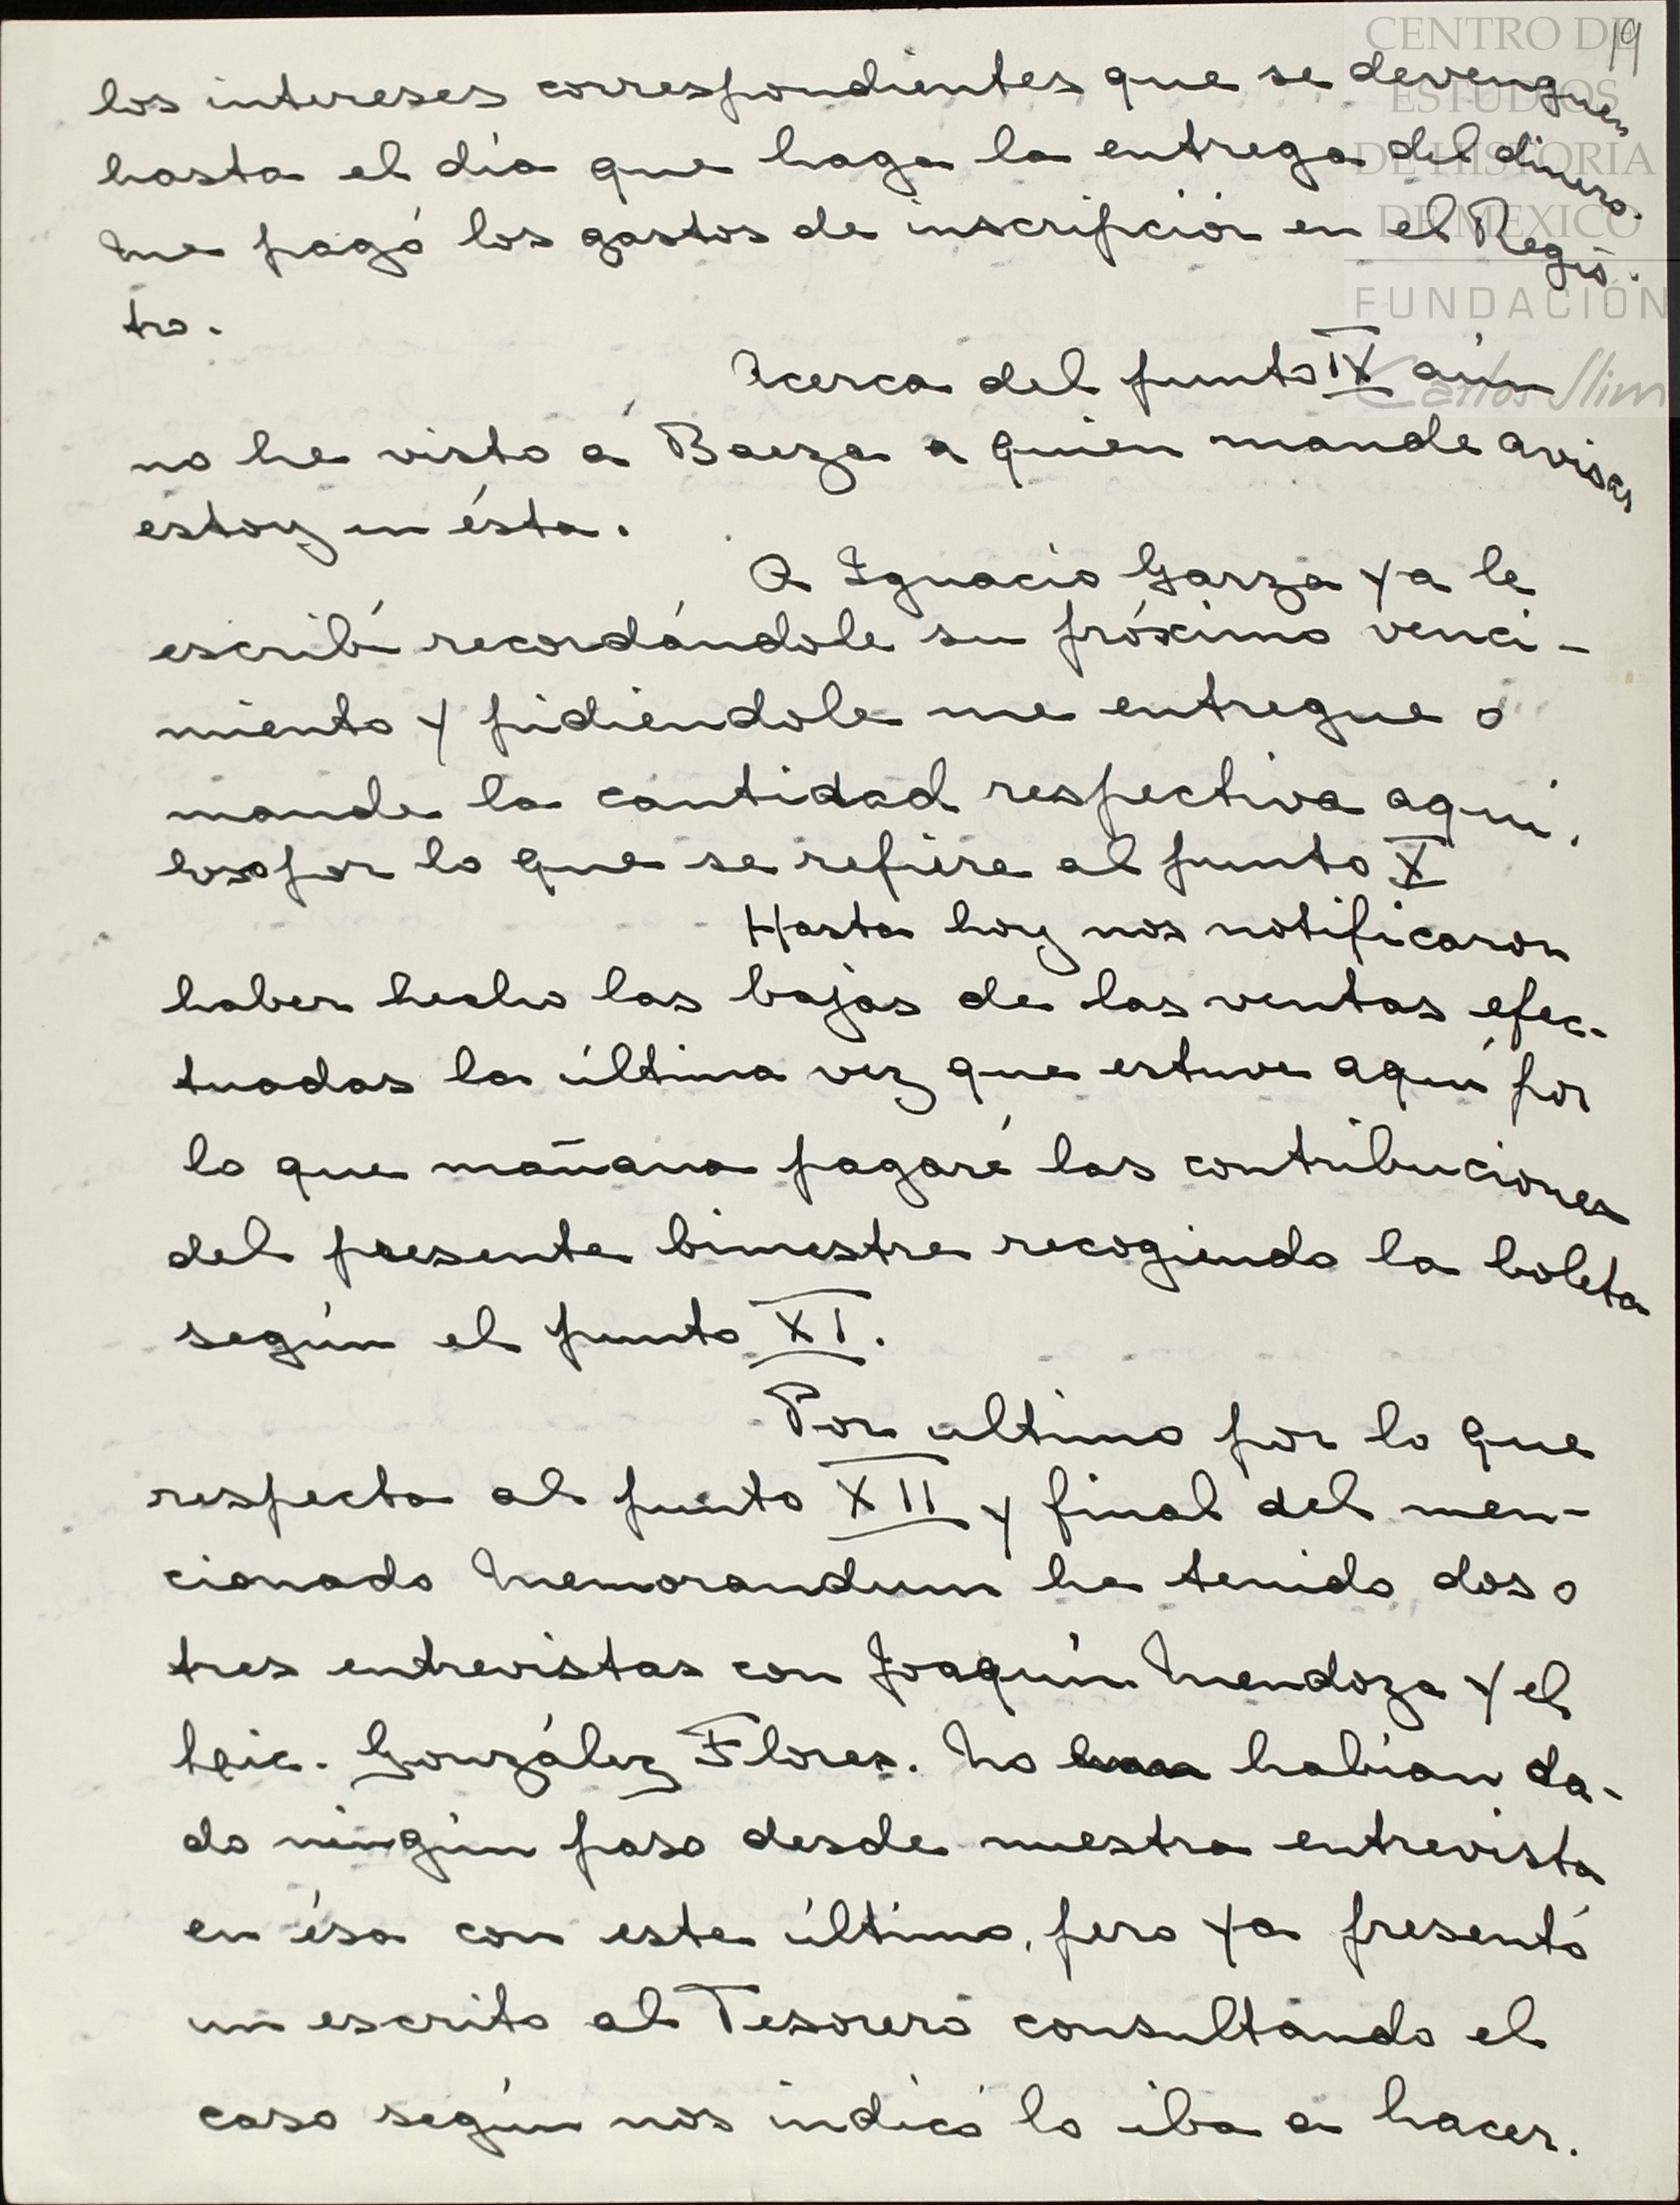 19
CENTRO DE
ESTUDIOS
DE HISTORIA
DE MEXICO
FUNDACIÓN
Carlos Slim
los intereses correspondientes que se devenguen
hasta el día que haga la entrega del dinero.
Me pagó los gastos de inscripción en el Regis-
tro.
Acerca del punto IX aún
no he visto a Baeza a quien mande avisar
estoy en ésta.
A Ignacio Garza ya le
escribí recordándole su próximo venci-
miento y pidiendole me entregue o
mande la cantidad respectiva aquí,
por lo que se refiere al punto X
Hasta hoy nos notificaron
haber hecho las bajas de las ventas efec-
tuadas la última vez que estuve aquí por
lo que mañana pagaré las contribuciones
del presente bimestre recogiendo la boleta
según el punto XI.
Por ultimo por lo que
respecta al punto XII y final del men-
cionado Memorandum he tenido dos o
tres entrevistas con Joaquín Mendoza y el
Lic. González Flores. No habían da-
do ningún paso desde nuestra entrevista
en ésa con este último, pero ya presentó
un escrito al Tesorero consultando el
caso según nos indicó lo iba a hacer.